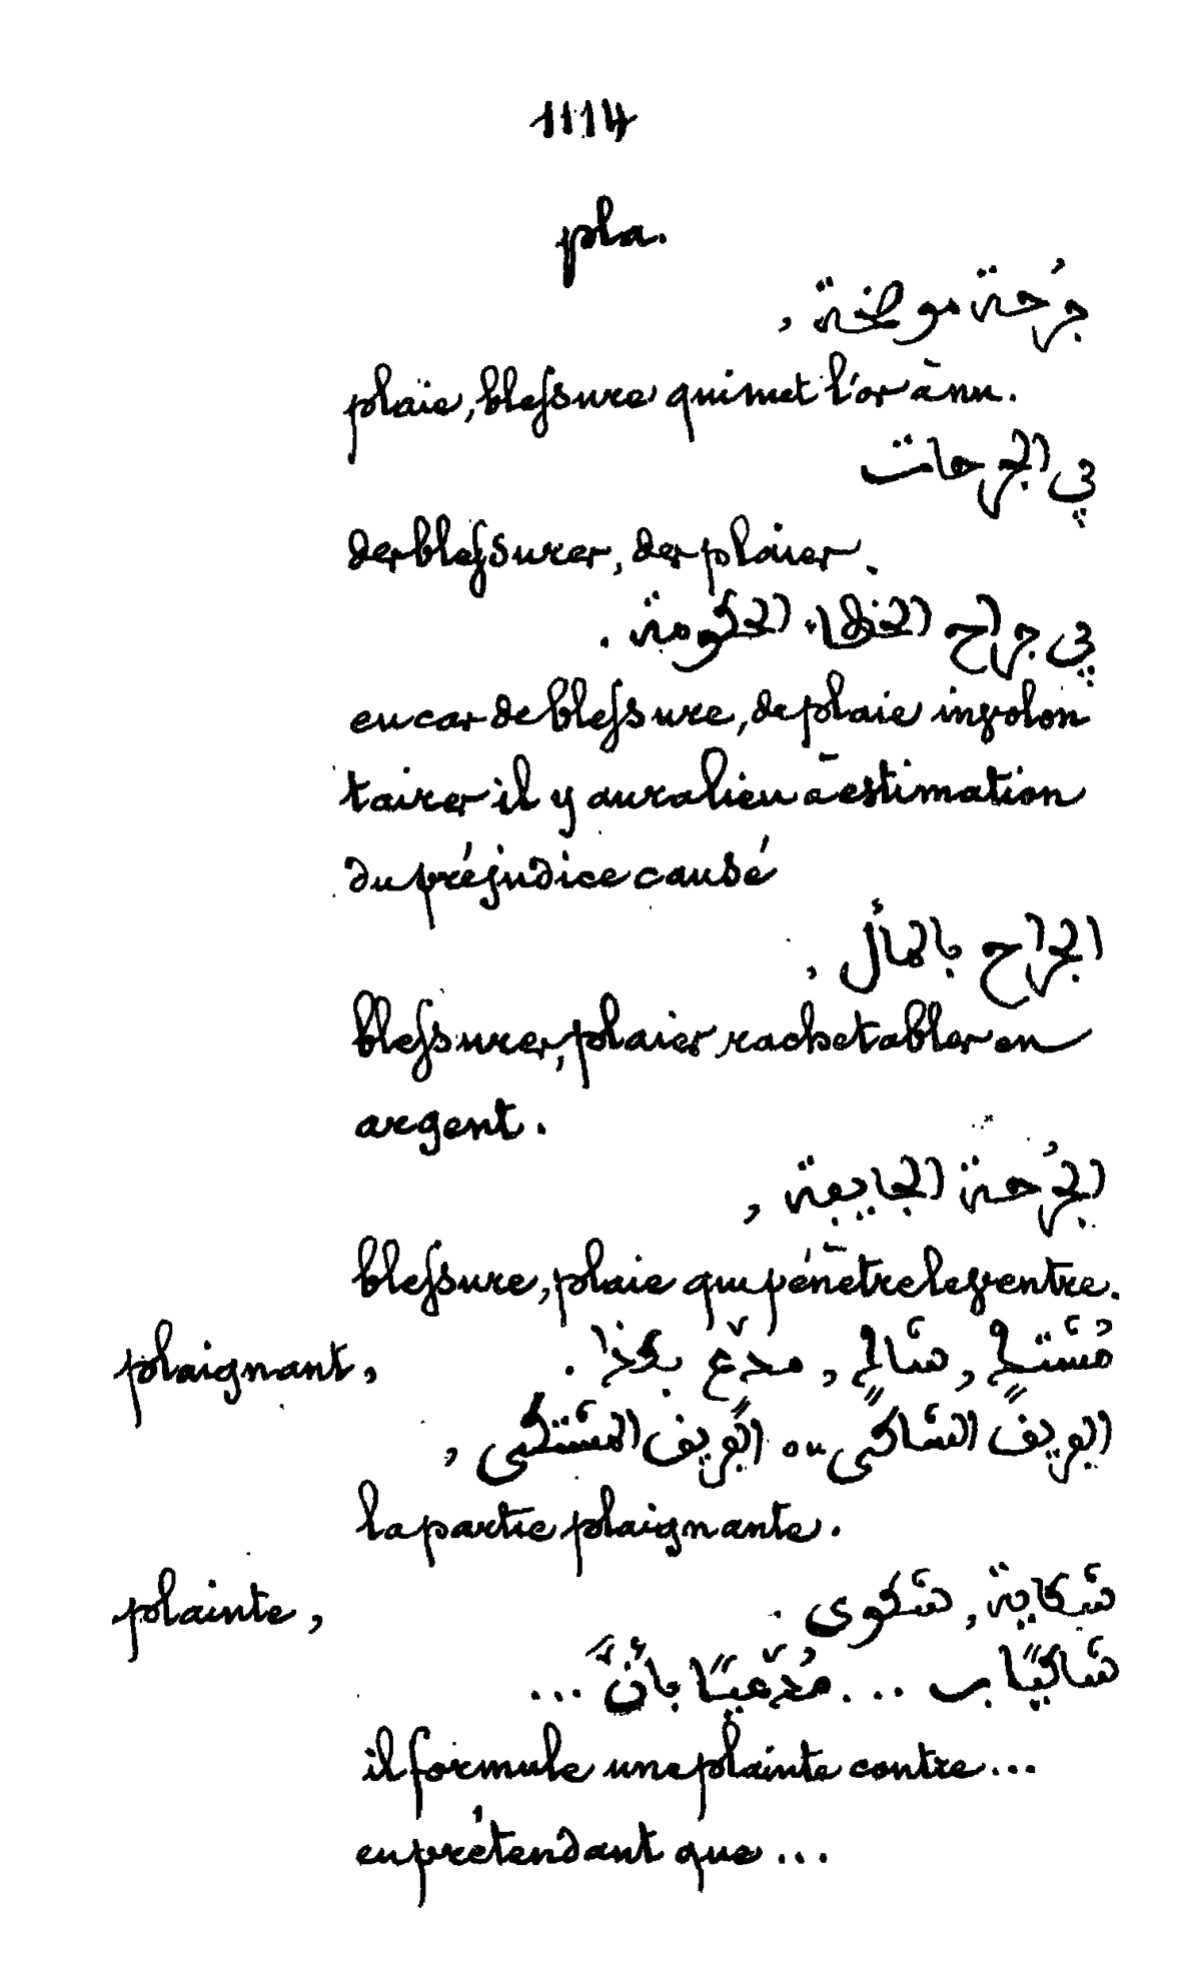 1114
pla.
جُرْحة موضحة ,
plaie, blessure qui met l'os à nu.
ڢي الجرحات
des blessures, des plaies.
ڢي جراح الخطاء الحكومة .
en cas de blessure, de plaie involon
taires il y aura lieu à estimation
du préjudice causé
الجراح بالمال ,
blessures, plaies rachetables en
argent.
الجُرحة الجايڢة ,
blessure, plaie qui pénètre le ventre.
plaignant, مُشتكٍ , شاكٍ , مدّع بكذا .
الڢريف الشاكي ou الڢريف المشتكى ,
la partie plaignante.
plainte, شكاية , شكوى .
شاكيًا ب ... مُدّعيًا بأنّ ...
il formule une plainte contre ...
en prétendant que ...